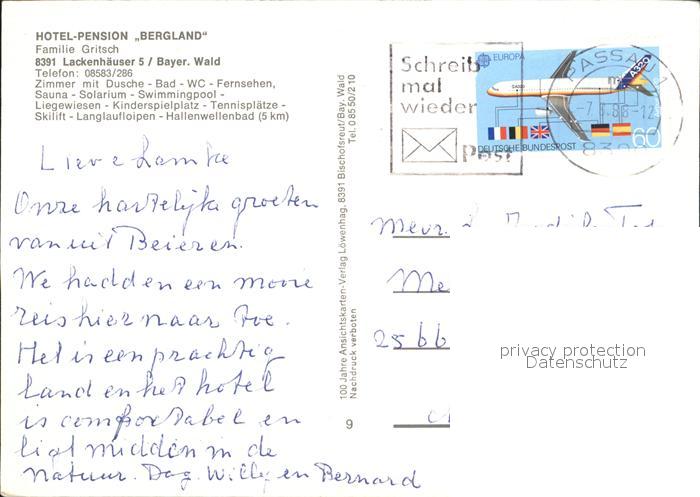 HOTEL-PENSION „BERGLAND"
Familie Gritsch
8391 Lackenhäuser 5 / Bayer. Wald
Telefon: 08583/286
Zimmer mit Dusche - Bad - WC - Fernsehen,
Sauna - Solarium - Swimmingpool -
Liegewiesen - Kinderspielplatz - Tennisplätze -
Skilift - Langlaufloipen - Hallenwellenbad (5 km)
Lieve Lamke
Onze hartelijke groeten
vanuit Beieren.
We hadden een mooie
reis hier naar toe.
Het is een prachtig
land en het hotel
is comfortabel en
ligt midden in de
natuur. Dag. Willy en Bernard
100 Jahre Ansichtskarten-Verlag Löwenhag, 8391 Bischofsreut/Bay. Wald
Tel. 08550/210
Nachdruck verboten
9
Schreib
mal
wieder
Post
EUROPA
A320
DEUTSCHE BUNDESPOST
60
PASSAU 1
Mevr.
Me
2566
privacy protection
Datenschutz